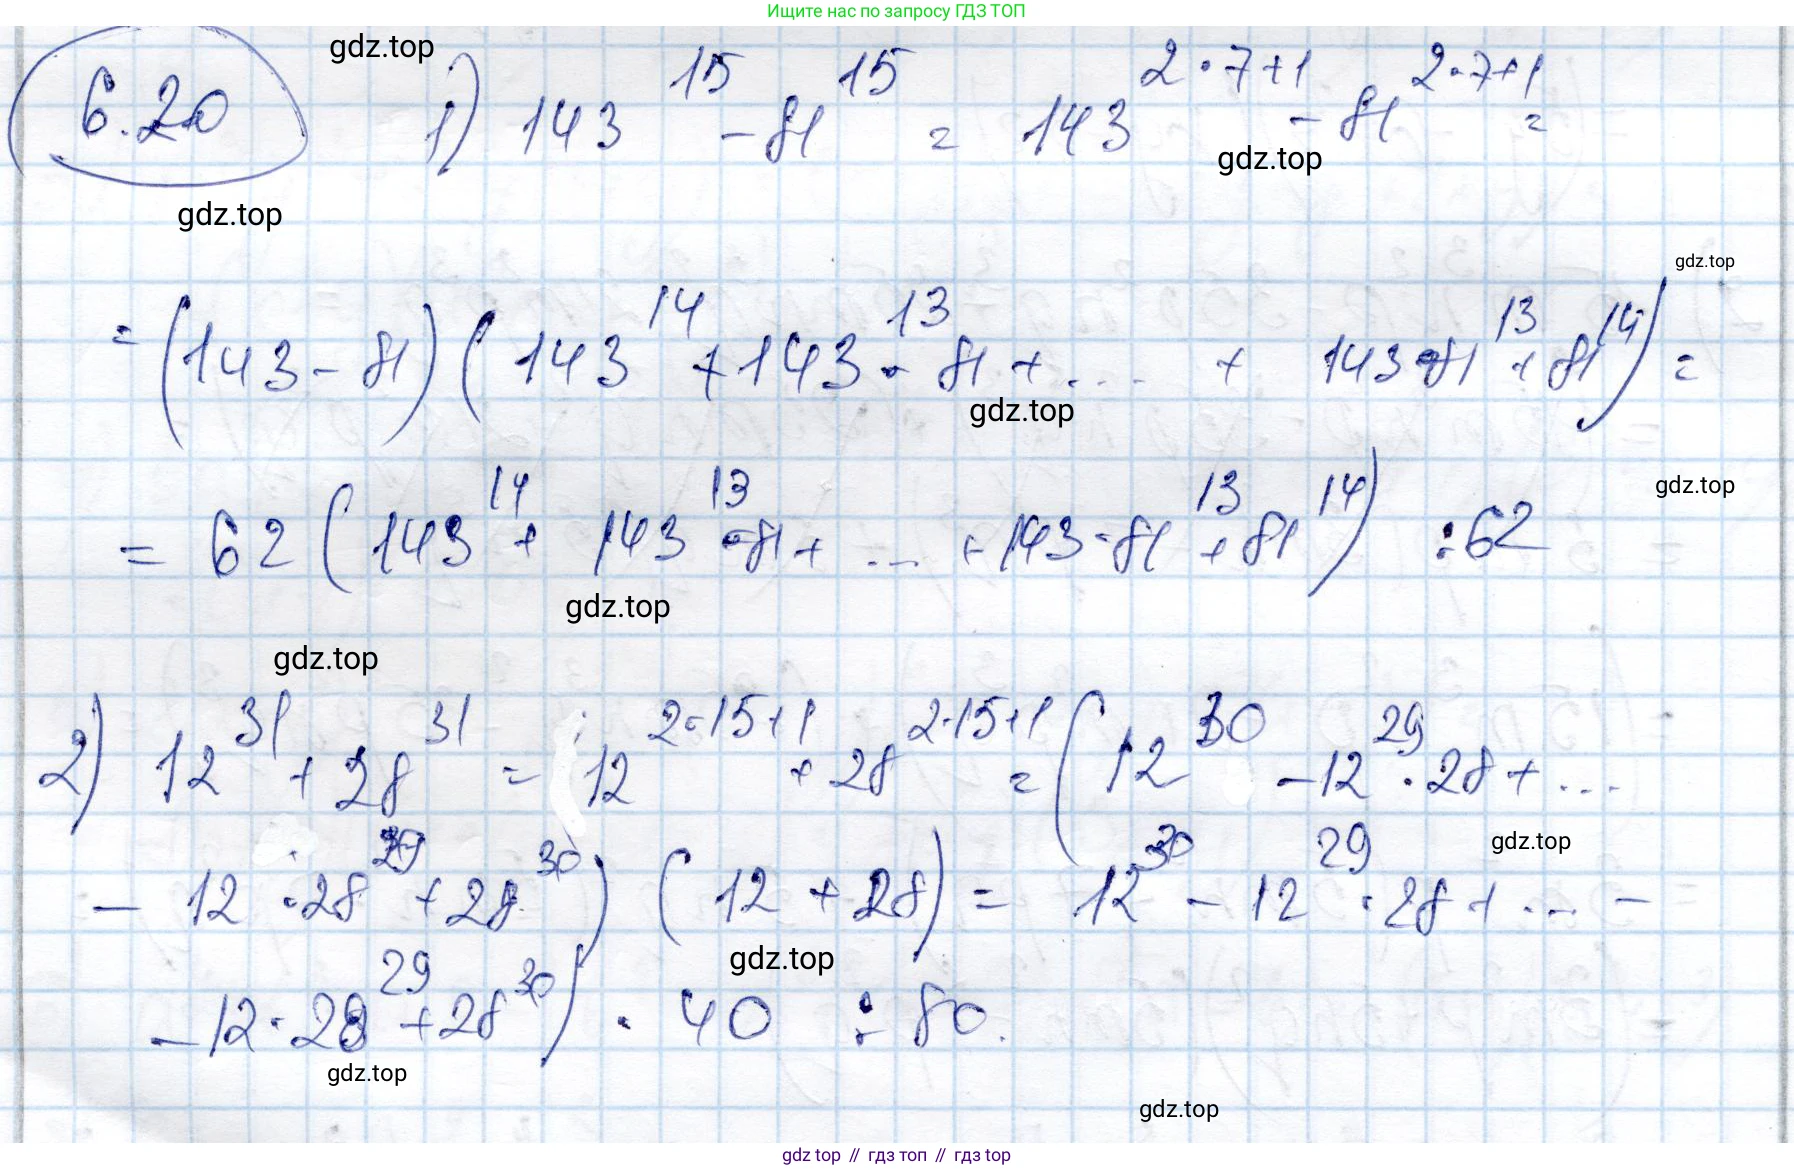 Ищите нас по запросу ГДЗ ТОП
gdz.top
6.20 1) 143^15 - 81^15 = 143^(2·7+1) - 81^(2·7+1) =
gdz.top
gdz.top
gdz.top
= (143 - 81)(143^14 + 143^13 · 81 + ... + 143·81^13 + 81^14) =
gdz.top
gdz.top
= 62 (143^14 + 143^13 · 81 + ... + 143·81^13 + 81^14) ⋮ 62
gdz.top
gdz.top
2) 12^31 + 28^31 = 12^(2·15+1) + 28^(2·15+1) = (12^30 - 12^29 · 28 + ...
gdz.top
- 12 · 28^29 + 28^30) (12 + 28) = 12^30 - 12^29 · 28 + ... -
gdz.top
- 12 · 28^29 + 28^30) · 40 ⋮ 80.
gdz.top
gdz.top
gdz top // гдз топ // gdz top